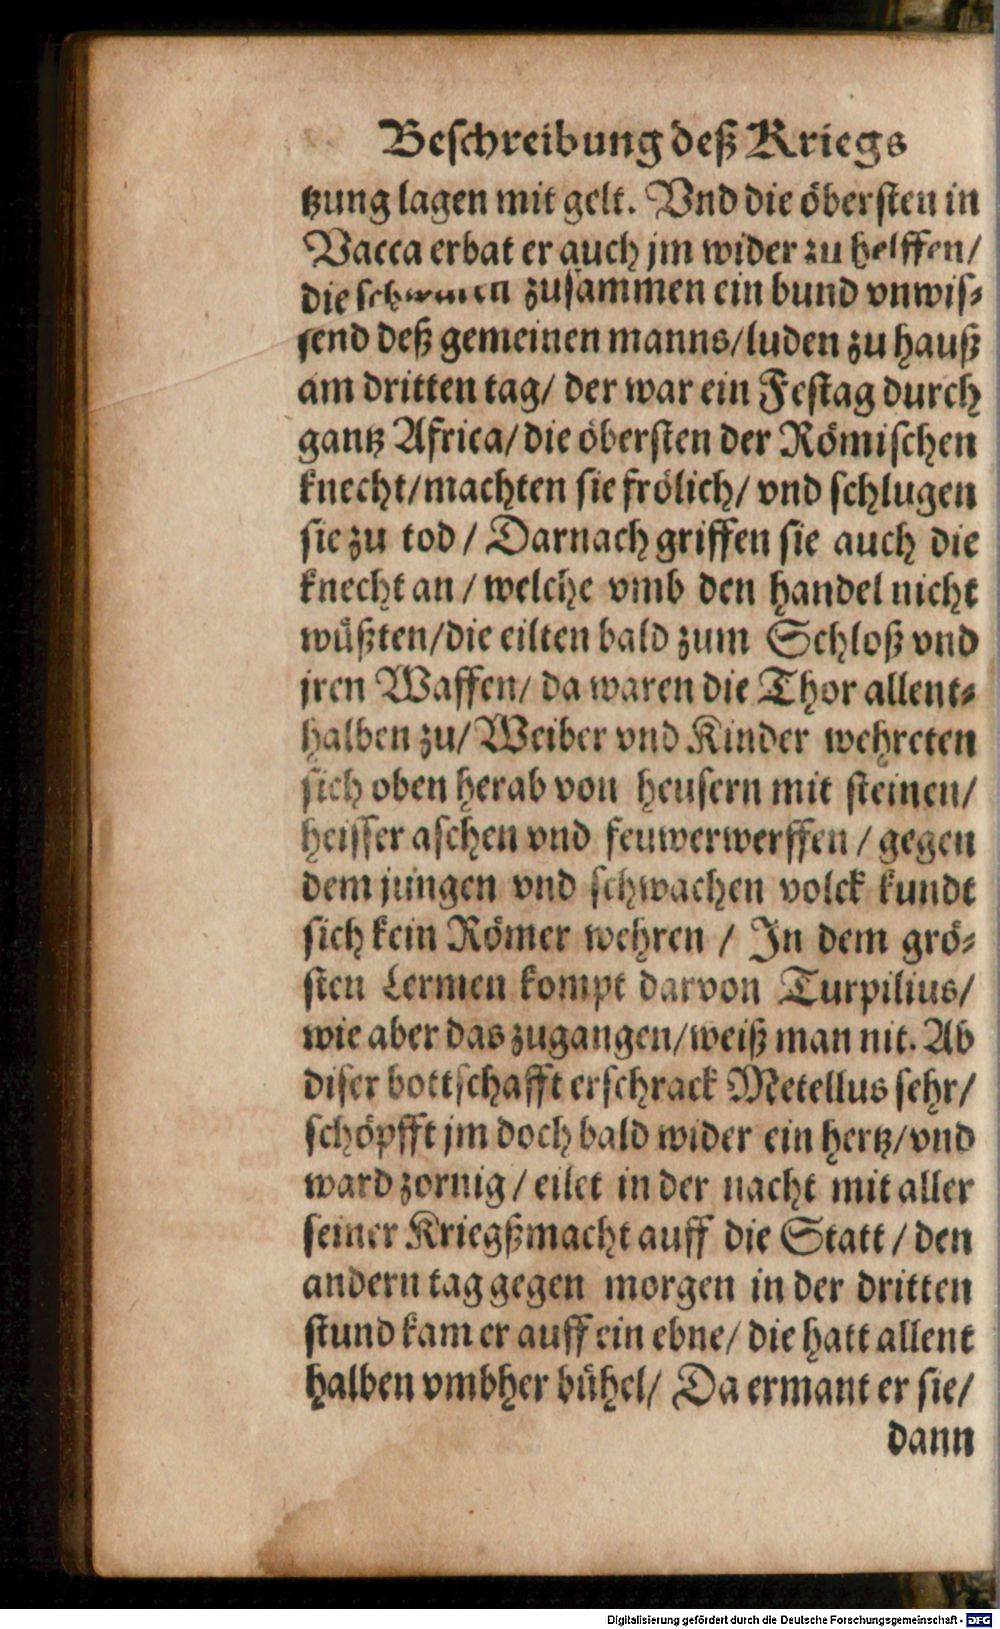 Beschreibung deß Kriegs
tzung lagen mit gelt. Vnd die öbersten in
Vacca erbat er auch jm wider zu helffen/
die zusammen ein bund vnwis⸗
send deß gemeinen manns/luden zu hauß
am dritten tag/ der war ein Festag durch
gantz Africa/die öbersten der Römischen
knecht/machten sie frölich/ vnd schlugen
sie zu tod / Darnach griffen sie auch die
knecht an / welche vmb den handel nicht
wüßten/die eilten bald zum Schloß vnd
jren Waffen/ da waren die Thor allent⸗
halben zu/ Weiber vnd Kinder wehreten
sich oben herab von heusern mit steinen/
heisser aschen vnd feuwerwerffen / gegen
dem jungen vnd schwachen volck kundt
sich kein Römer wehren / In dem grö⸗
sten Lermen kompt darvon Turpilius/
wie aber das zugangen/weiß man nit. Ab
diser bottschafft erschrack Metellus sehr/
schöpfft jm doch bald wider ein hertz/vnd
ward zornig / eilet in der nacht mit aller
seiner Kriegßmacht auff die Statt / den
andern tag gegen morgen in der dritten
stund kam er auff ein ebne/ die hatt allent
halben vmbher bühel/ Da ermant er sie/
dann
Digitalisierung gefördert durch die Deutsche Forschungsgemeinschaft - DFG